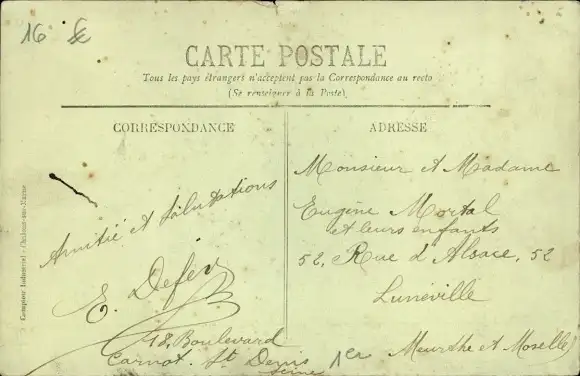 16 £
CARTE POSTALE
Tous les pays étrangers n'acceptent pas la Correspondance au recto
(Se renseigner à la Poste).
CORRESPONDANCE
Amitié et Salutations
E. Defer
18, Boulevard
Carnot. St Denis
Seine
ADRESSE
Monsieur et Madame
Eugène Mortal
et leurs enfants
52, Rue d'Alsace, 52
Lunéville
1er Meurthe et Moselle)
Comptoir Industriel - Chalons-sur-Marne